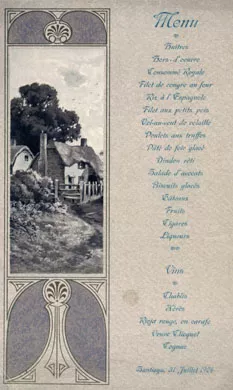 Menu
Huîtres
Hors-d'oeuvre
Consommé Royale
Filet de congre au four
Riz à l'Espagnole
Filet aux petits pois
Vol-au-vent de volaille
Poulets aux truffes
Pâté de foie glacé
Dindes rôti
Salade d'avocats
Biscuits glacés
Gâteaux
Fruits
Cigares
Liqueurs
Vins
Chablis
Xérès
Rioja rouge, en carafe
Veuve Clicquot
Cognac
Santiago, 31 Juillet